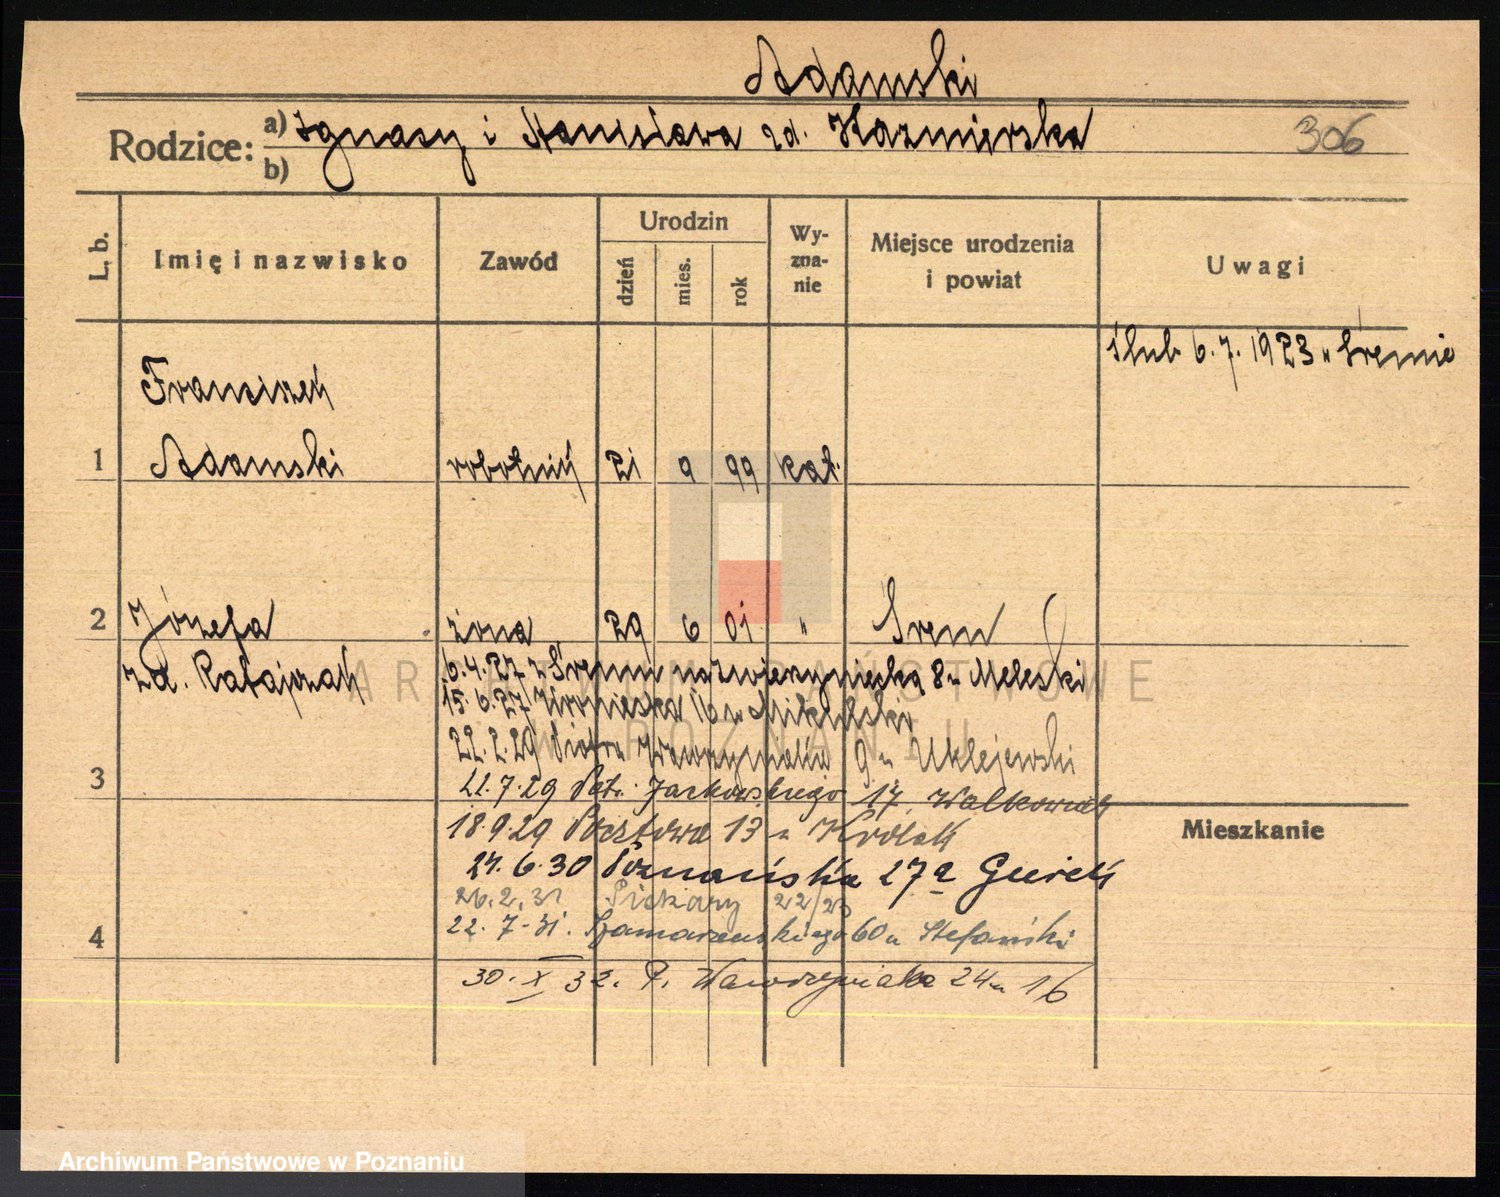 Adamski
Rodzice: a) Ignacy i Stanisława zd. Kaźmierska
306
b)
L. b.
Imię i nazwisko
Zawód
Urodzin
dzień
mies.
rok
Wy-
zna-
nie
Miejsce urodzenia
i powiat
Uwagi
ślub 6.7.1923 w Śremie
Franciszek
1 Adamski robotnik 21 9 99 kat.
2 Józefa żona 29 6 01 " Śrem
zd. Ratajczak
6.4.27 z Śremu na Zwierzyniecką 8 u Meleski
15.6.27 16 u Mikulski
22.2.29 Piotra Wawrzyniaka 9 u Uklejewski
3
22.7.29 Patr. Jackowskiego 17, Walkowiak
18.9.29 Pocztowa 13 u Królak
24.6.30 Poznańska 27a
26.2.31 Piekary 22/23
4
22.7.31. Szamarzewskiego 60 u Stefański
30.X 32. P. Wawrzyniaka 24 m 16
Mieszkanie
ARCHIWUM PAŃSTWOWE
W POZNANIU
Archiwum Państwowe w Poznaniu